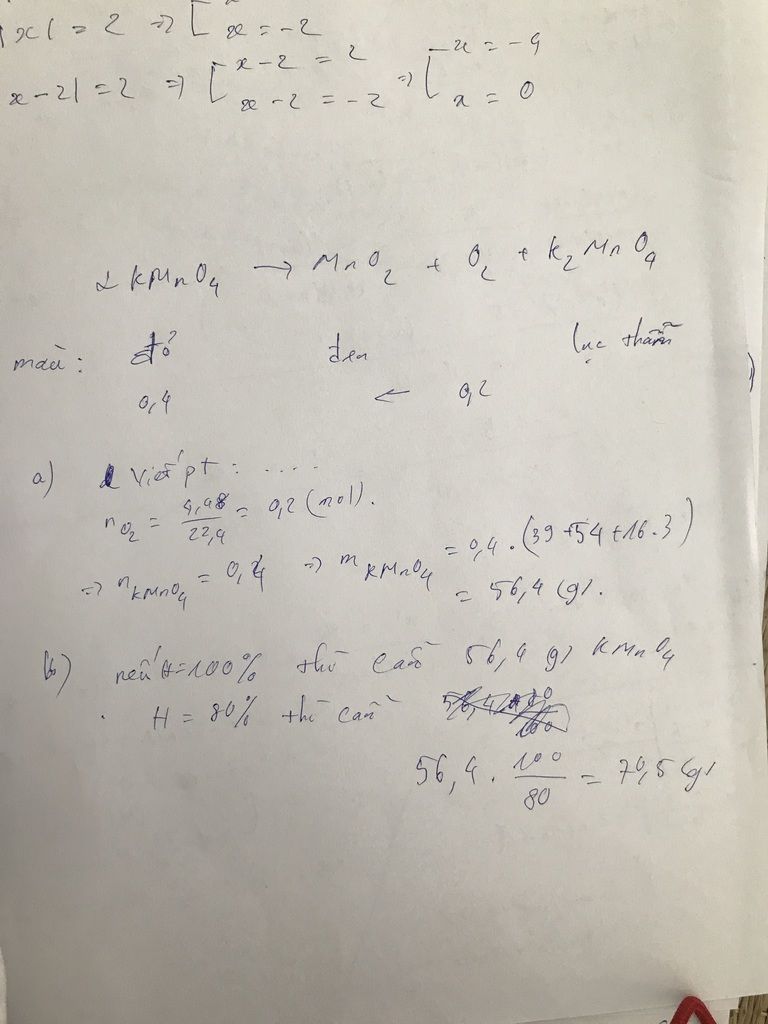 |x| = 2 => [ x = -2
x - 2| = 2 => [ x - 2 = 2 => [ x = -4
x - 2 = -2 x = 0
2 KMnO4 → MnO2 + O2 + K2MnO4
màu: đỏ đen lục thẫm
0,4 ← 0,2
a) Viết pt : ....
nO2 = 4,48/22,4 = 0,2 (mol).
=> nKMnO4 = 0,4 => mKMnO4 = 0,4 . (39 + 54 + 16.3)
= 56,4 (g).
b) nếu H=100% thì cần 56,4 (g) KMnO4
H = 80% thì cần
56,4 . 100/80 = 70,5 (g)